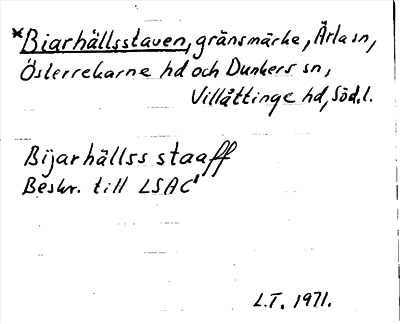 *Biarhällsstaven, gränsmärke, Ärla sn,
Österrekarne hd och Dunkers sn,
Villåttinge hd, Söd.l.
Bijarhällss staaff
Beskr. till LSAC1
L.T. 1971.